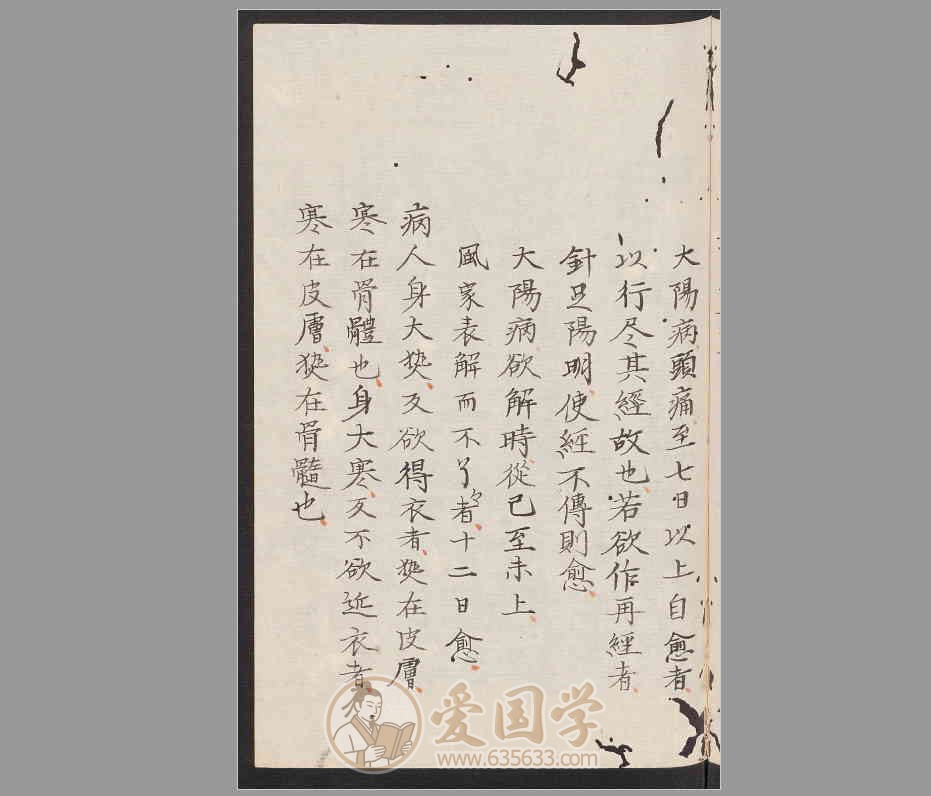 大陽病頭痛至七日以上自愈者
以行尽其經故也若欲作再經者
針足陽明使經不傳則愈
大陽病欲解時從巳至未上
風家表解而不了々者十二日愈
病人身大𤍠反欲得衣者𤍠在皮膚
寒在骨髓也身大寒反不欲近衣者
寒在皮膚𤍠在骨髓也
爱国学
www.635633.com